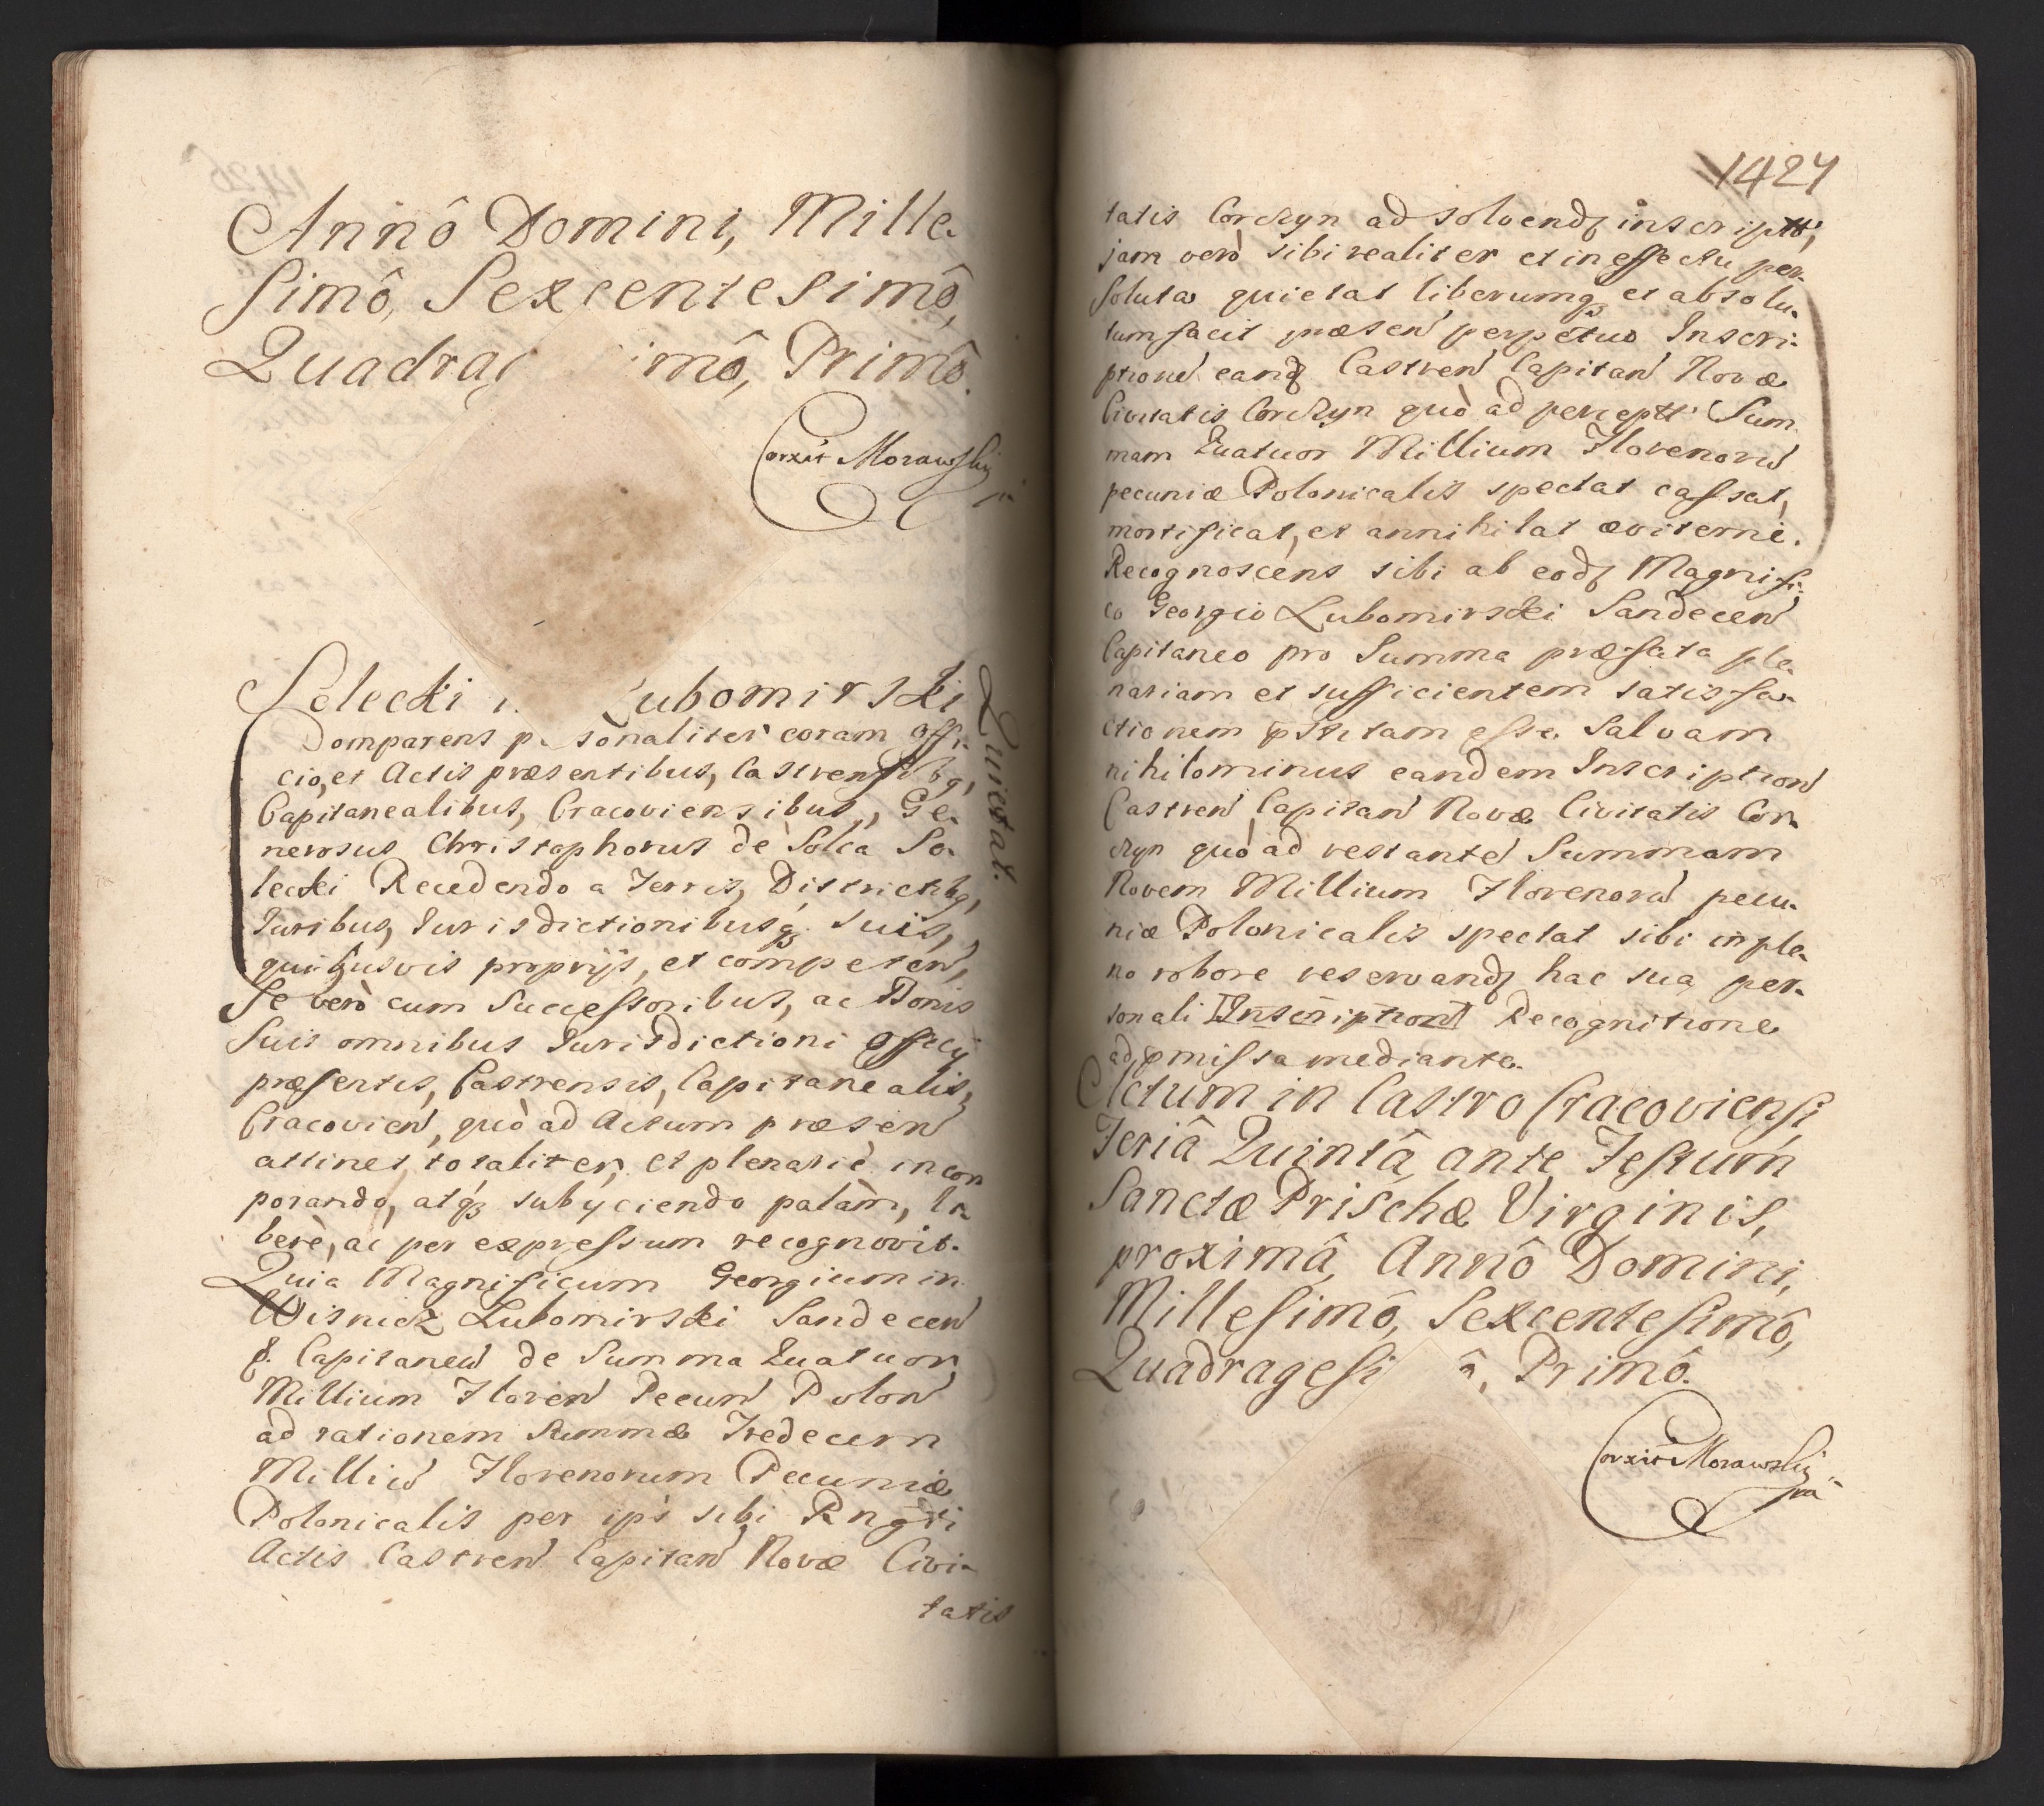 Annô Domini, Mille-
simô, Sexcentesimô,
Quadrag imô, Primô.
Corxit Morawski
Solecki Lubomirski
Quietat.
Comparens personaliter coram Offi-
cio, et Actis præsentibus, Castrensibq,
Capitanealibus, Cracoviensibus, Ge-
nerosus Christophorus de Solca So-
lecki Recedendo a Terris, Districtibq,
Iuribus, Iurisdictionibusq suis,
quibusvis proprijs, et competen,
Se verò cum Successoribus, ac Bonis
Suis omnibus Iurisdictioni Officij
præsentis, Castrensis, Capitanealis,
Cracovien, quò ad Actum præsen
attinet totaliter, et plenariè incor
porando, atq subyciendo palàm, li-
berè, ac per expressum recognovit.
Quia Magnificum Georgium in
Wisnicz Lubomirski Sandecen
Capitaneu de Summa Quatuor
Millium Floren Pecun Polon
ad rationem Summæ Tredecem
Milliu Florenorum Pecuniæ
Polonicalis per ips sibi
Actis Castren Capitan Novæ Civi-
tatis
1427
tatis Corczyn ad solvend inscriptt,
jam verò sibi realiter et in effectu per-
soluta quietat liberumq et absolu-
tum facit præsen perpetuo Inscri-
ption eand Castren Capitan Novæ
Civitatis Corczyn quò ad perceptt Sum
mam Quatuor Millium Florenoru
pecuniæ Polonicalis spectat cassat,
mortificat, et annihilat æviternè.
Recognoscens sibi ab eod Magnifi-
co Georgio Lubomirski Sandecen
Capitaneo pro Summa præfata ple-
nariam et sufficientem satisfa-
ctionem esse. Salvam
nihilominus eandem Inscription
Castren Capitan Novæ Civitatis Cor-
czyn quò ad restante Summam
Novem Millium Florenoru pecu-
niæ Polonicalis spectat sibi in ple-
no robore reservand hac sua per-
sonali Inscription Recognitione
ad pmissa mediante.
Actum in Castro Cracoviensi,
Feriâ Quintâ ante Festum
Sanctæ Prischæ Virginis,
proximâ, Annô Domini,
Millesimô, Sexcentesimô,
Quadragesi ô, Primô.
Corxit Morawski